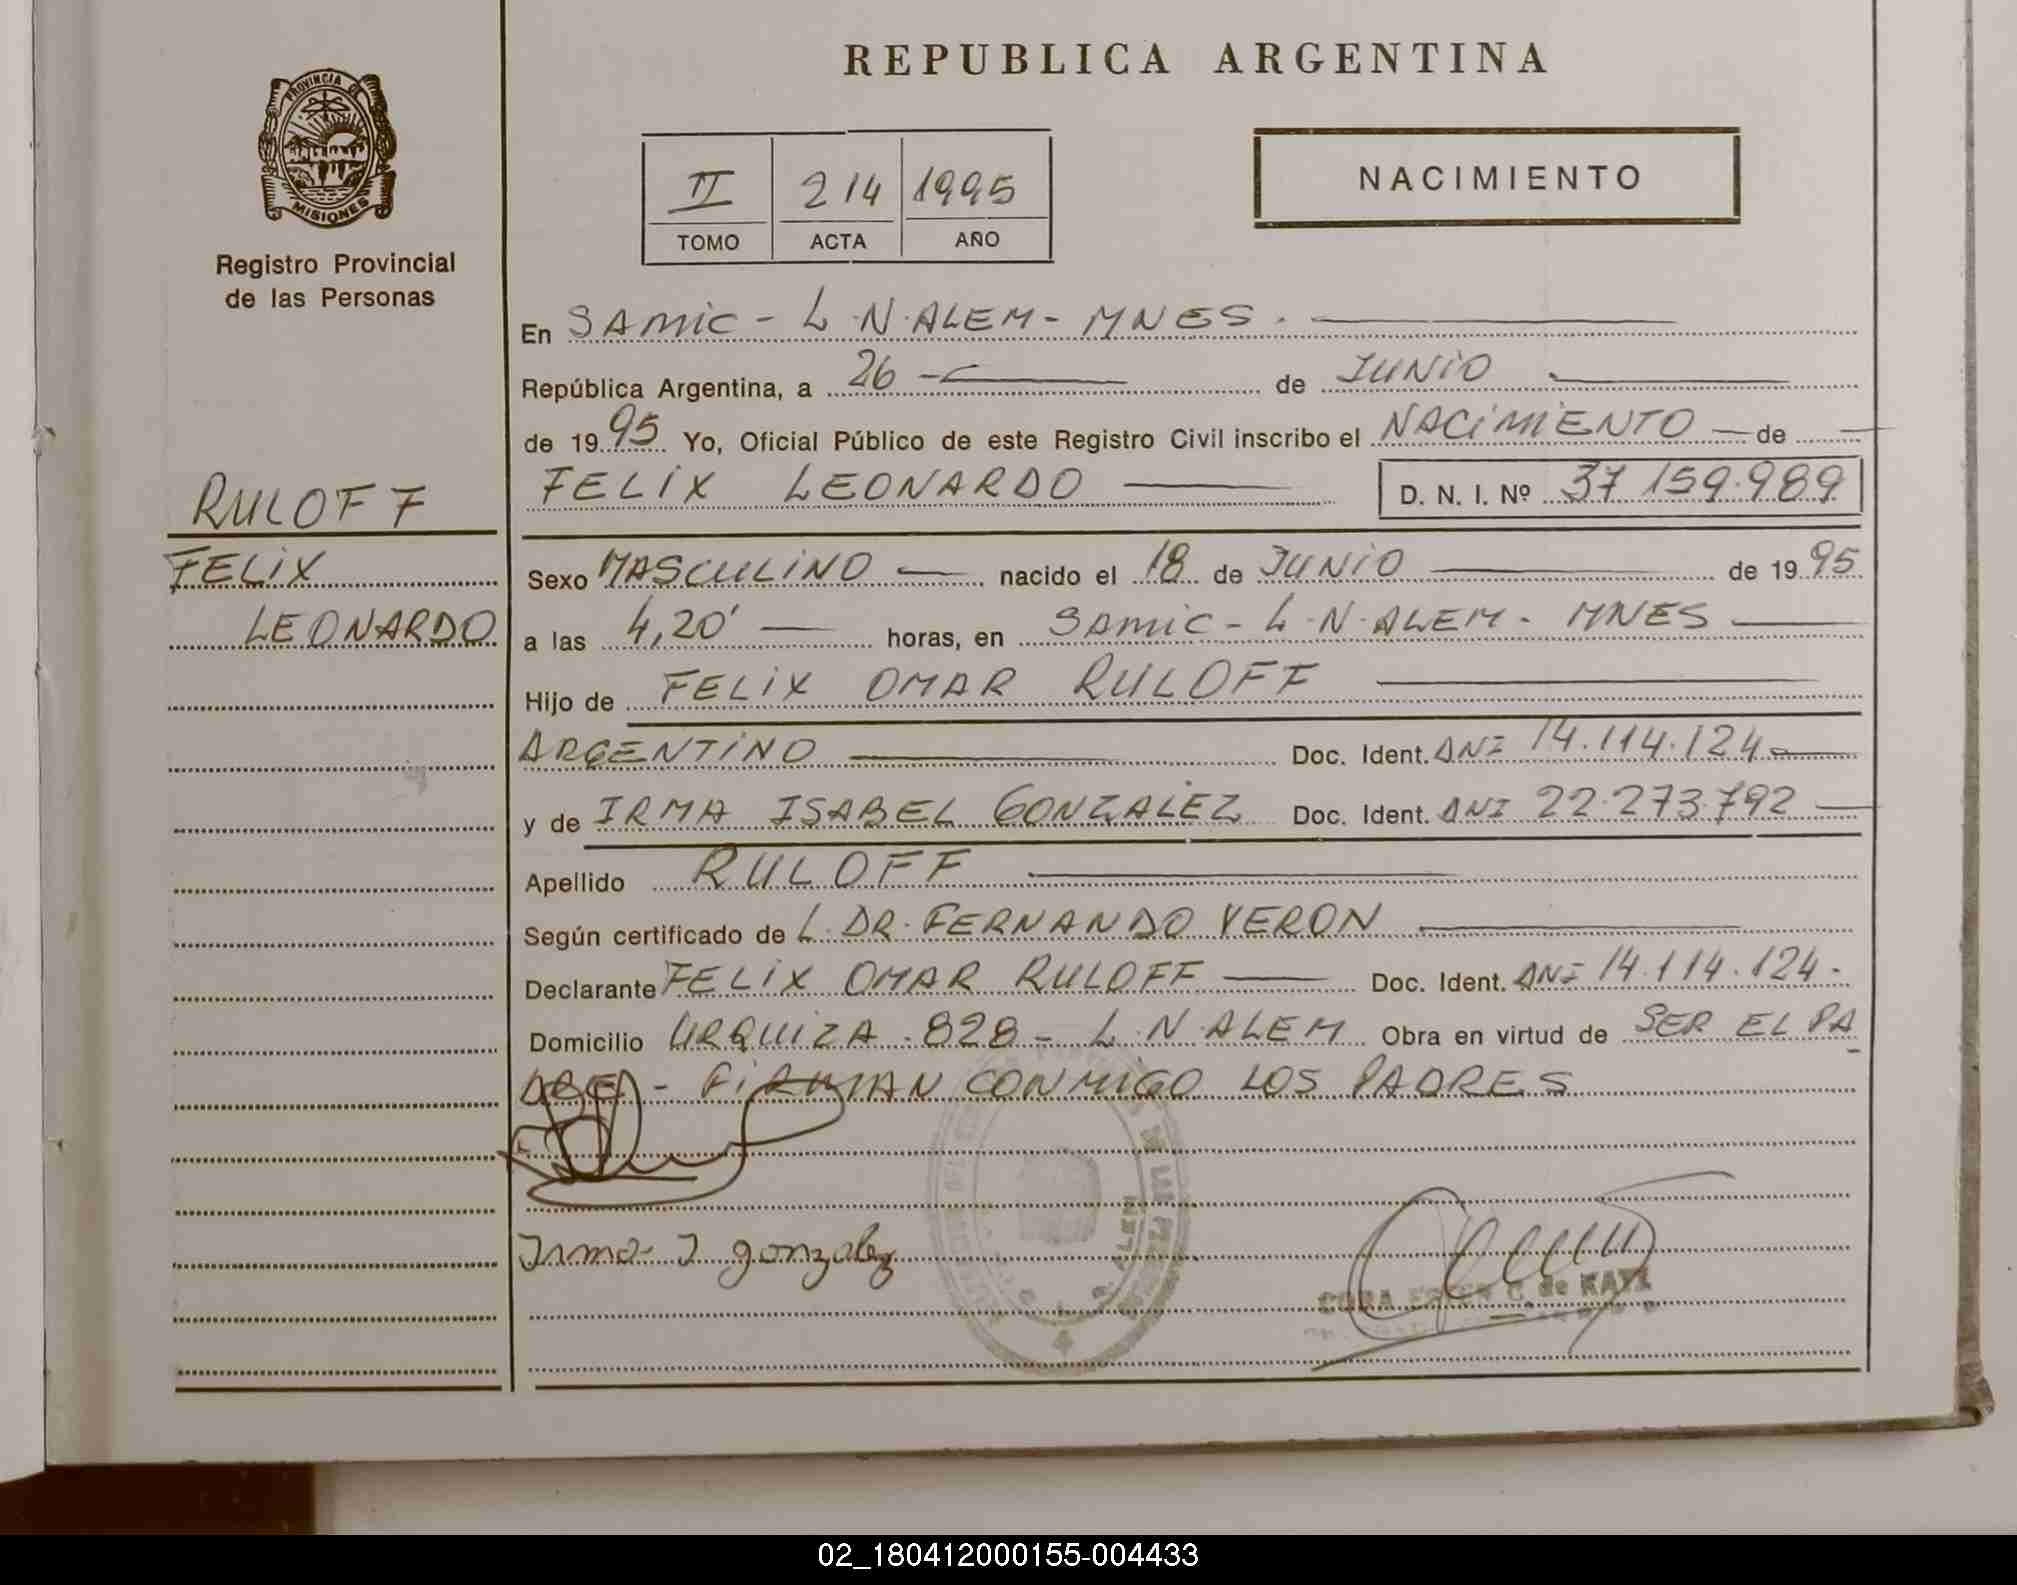 REPUBLICA ARGENTINA
PROVINCIA DE
MISIONES
Registro Provincial
de las Personas
II 214 1995
TOMO ACTA AÑO
NACIMIENTO
En SAMIC - L.N.ALEM - MNES.
República Argentina, a 26 de JUNIO
de 1995 Yo, Oficial Público de este Registro Civil inscribo el NACIMIENTO de
FELIX LEONARDO D. N. I. Nº 37159.989
RULOFF
FELIX
LEONARDO
Sexo MASCULINO nacido el 18 de JUNIO de 1995
a las 4,20' horas, en SAMIC - L.N.ALEM - MNES
Hijo de FELIX OMAR RULOFF
ARGENTINO Doc. Ident. DNI 14.114.124
y de IRMA ISABEL GONZALEZ Doc. Ident. DNI 22.273.792
Apellido RULOFF
Según certificado de L. DR. FERNANDO VERON
Declarante FELIX OMAR RULOFF Doc. Ident. DNI 14.114.124.
Domicilio URQUIZA 828 - L.N.ALEM Obra en virtud de SER EL PA
DRE - FIRMAN CONMIGO LOS PADRES
Irma I gonzalez
de KATZ
02_180412000155-004433